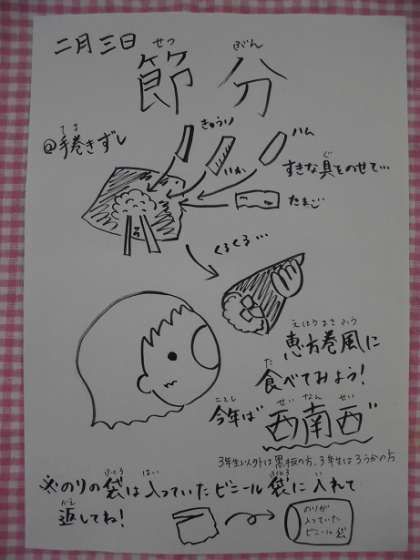 二月三日
せつ ぶん
節分
てま
@手巻きずし
きゅうり
いか
ハム
たまご
ぐ
すきな具をのせて…
くるくる…
えほうまきふう
恵方巻風に
た
食べてみよう!
ことし せいなんせい
今年は“西南西”
3年生以外は黒板の方、3年生はろうかの方
ふくろ はい ふくろ い
※のりの袋は入っていたビニール袋に入れて
かえ
返してね!
のりが
入っていた
ビニール袋